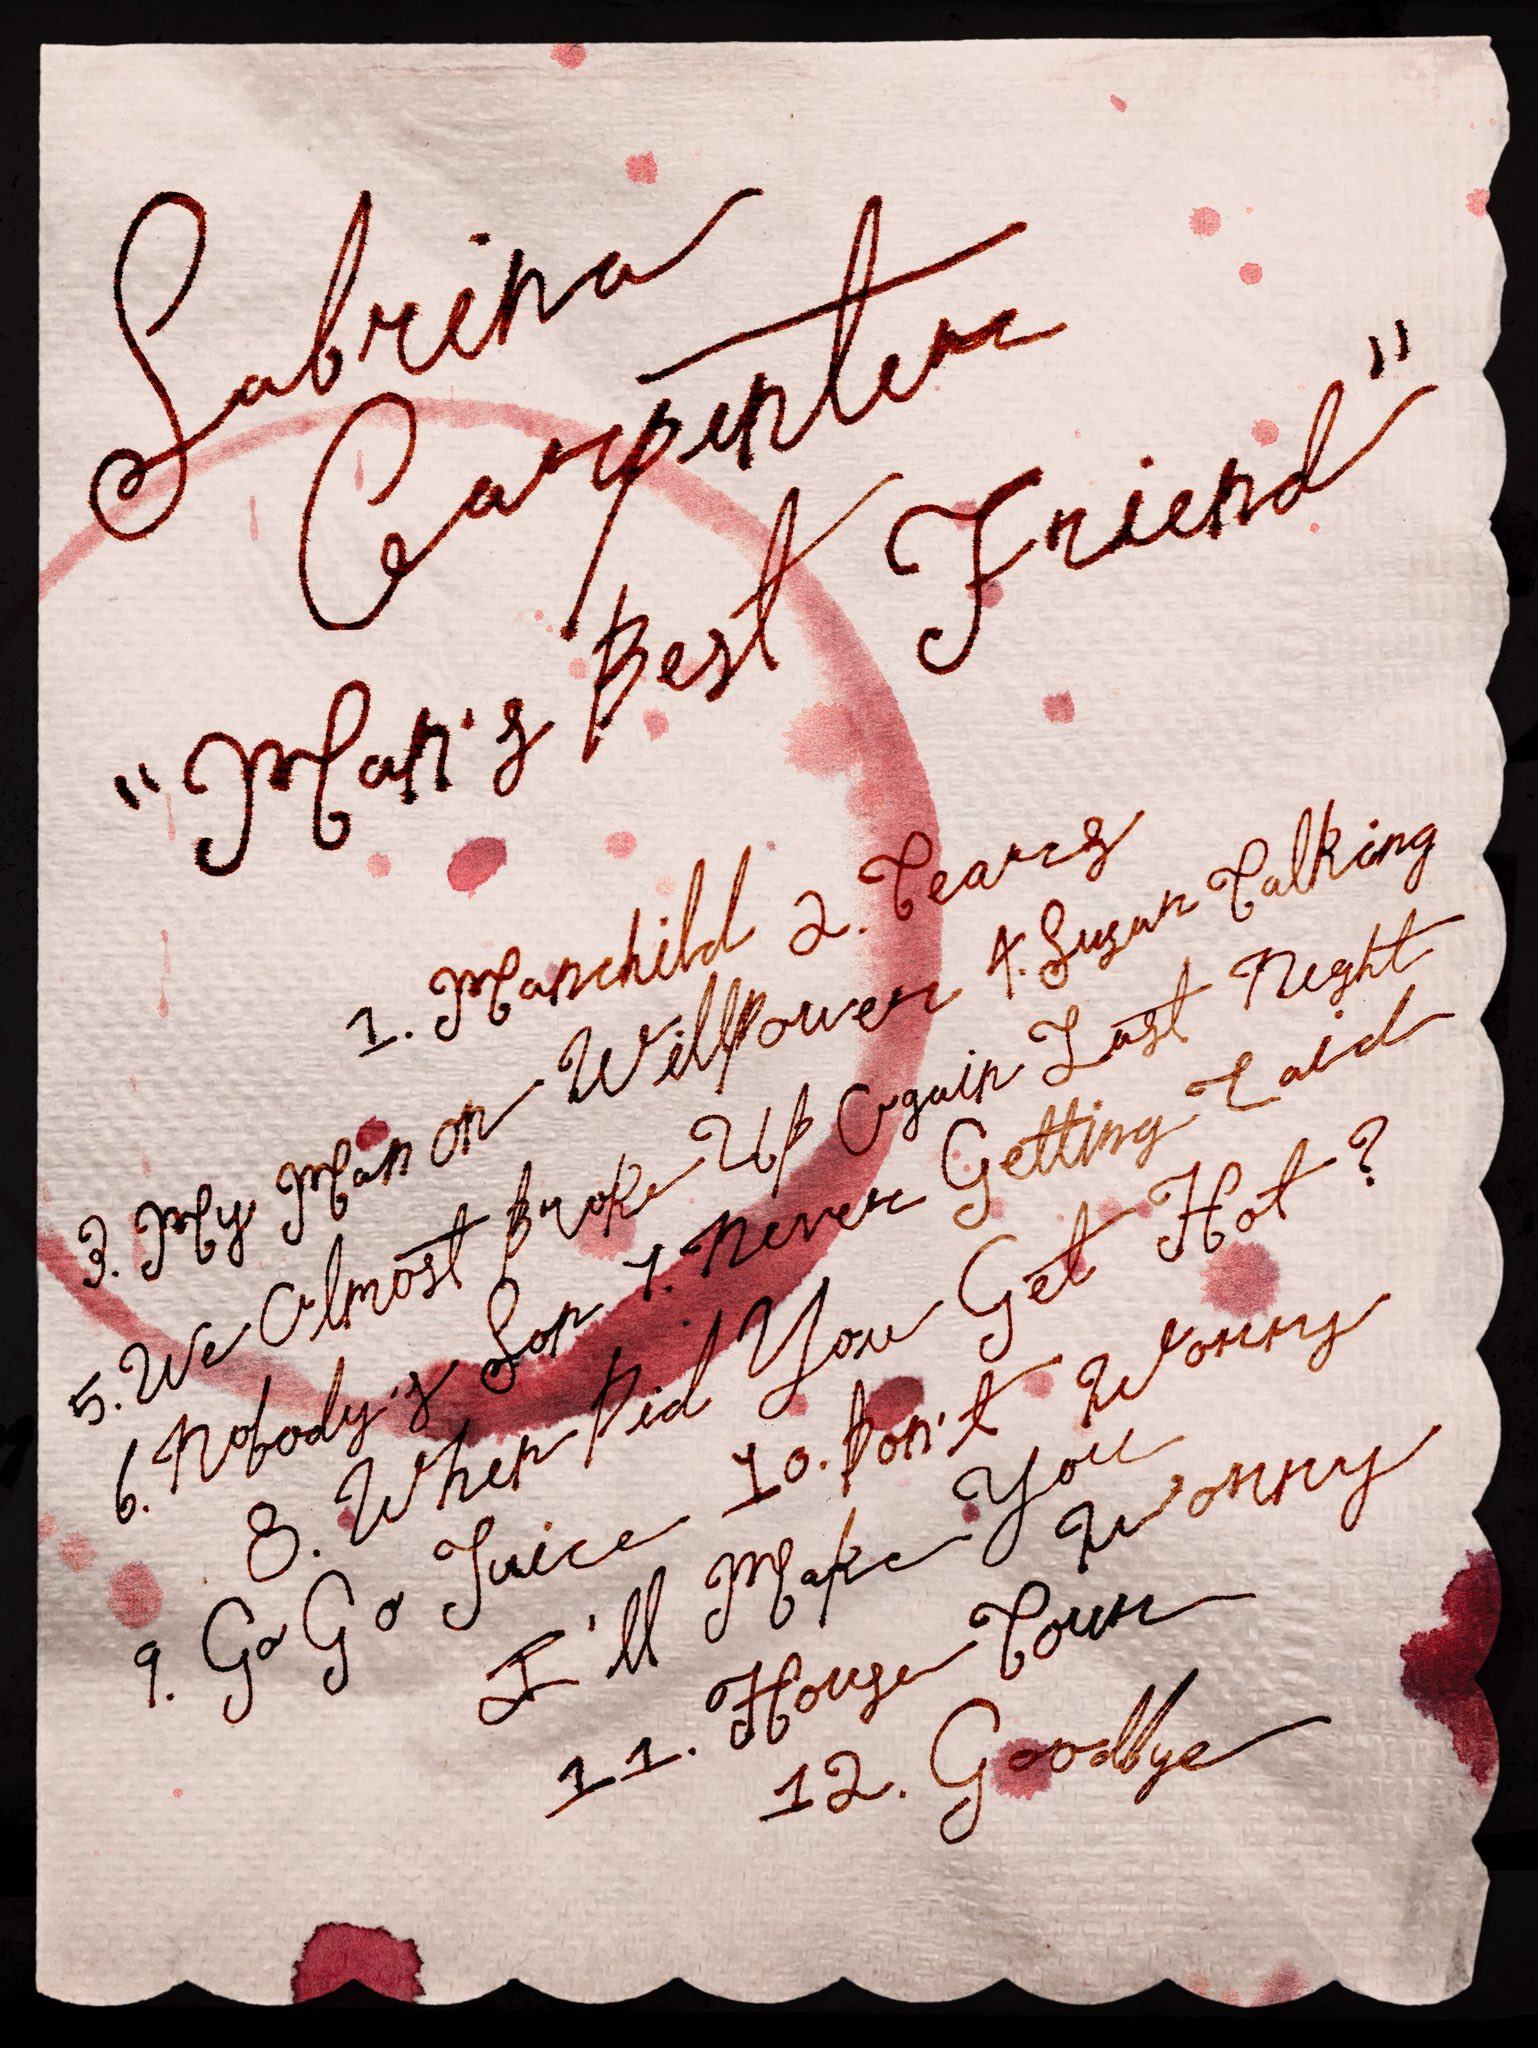 Sabrina
Carpenter
"Man's Best Friend"
1. Manchild 2. Tears
3. My Man on Willpower 4. Sugar Talking
5. We Almost Broke Up Again Last Night
6. Nobody's Son 7. Never Getting Laid
8. When Did You Get Hot?
9. Go Go Juice 10. Don't Worry
I'll Make You Worry
11. House Tour
12. Goodbye